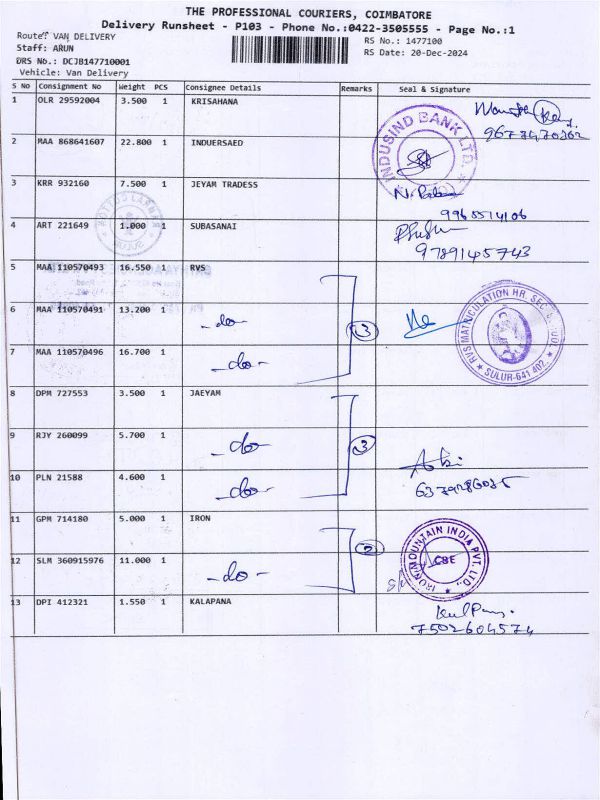 THE PROFESSIONAL COURIERS, COIMBATORE
Delivery Runsheet - P103 - Phone No.:0422-3505555 - Page No.:1
Route: VAN DELIVERY
RS No.: 1477100
Staff: ARUN
RS Date: 20-Dec-2024
DRS No.: DCJB147710001
Vehicle: Van Delivery
S No Consignment No Weight PCS Consignee Details Remarks Seal & Signature
1 OLR 29592004 3.500 1 KRISAHANA
INDUSIND BANK LTD.
2 MAA 868641607 22.800 1 INDUERSAED
3 KRR 932160 7.500 1 JEYAM TRADESS
9965514106
4 ART 221649 1.000 1 SUBASANAI
9789145743
5 MAA 110570493 16.550 1 RVS
6 MAA 110570491 13.200 1 -do- 3
RVS MATRICULATION HR. SEC. SCHOOL
SULUR-641 402.
7 MAA 110570496 16.700 1 -do-
8 DPM 727553 3.500 1 JAEYAM
9 RJY 260099 5.700 1 -do- 3
10 PLN 21588 4.600 1 -do-
11 GPM 714180 5.000 1 IRON
2
IRON MOUNTAIN INDIA PVT. LTD.
CBE
12 SLM 360915976 11.000 1 -do-
13 DPI 412321 1.550 1 KALAPANA
7502604574